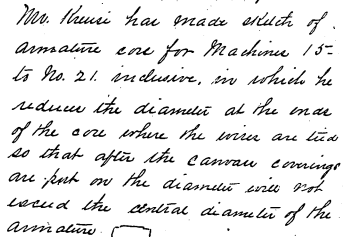 Mr. Kruesi has made sketch of
armature core for Machines 15-
to No. 21. inclusive, in which he
reduces the diameter at the ends
of the core where the wires are tied
so that after the canvas coverings
are put on the diameter will not
exceed the central diameter of the
armature